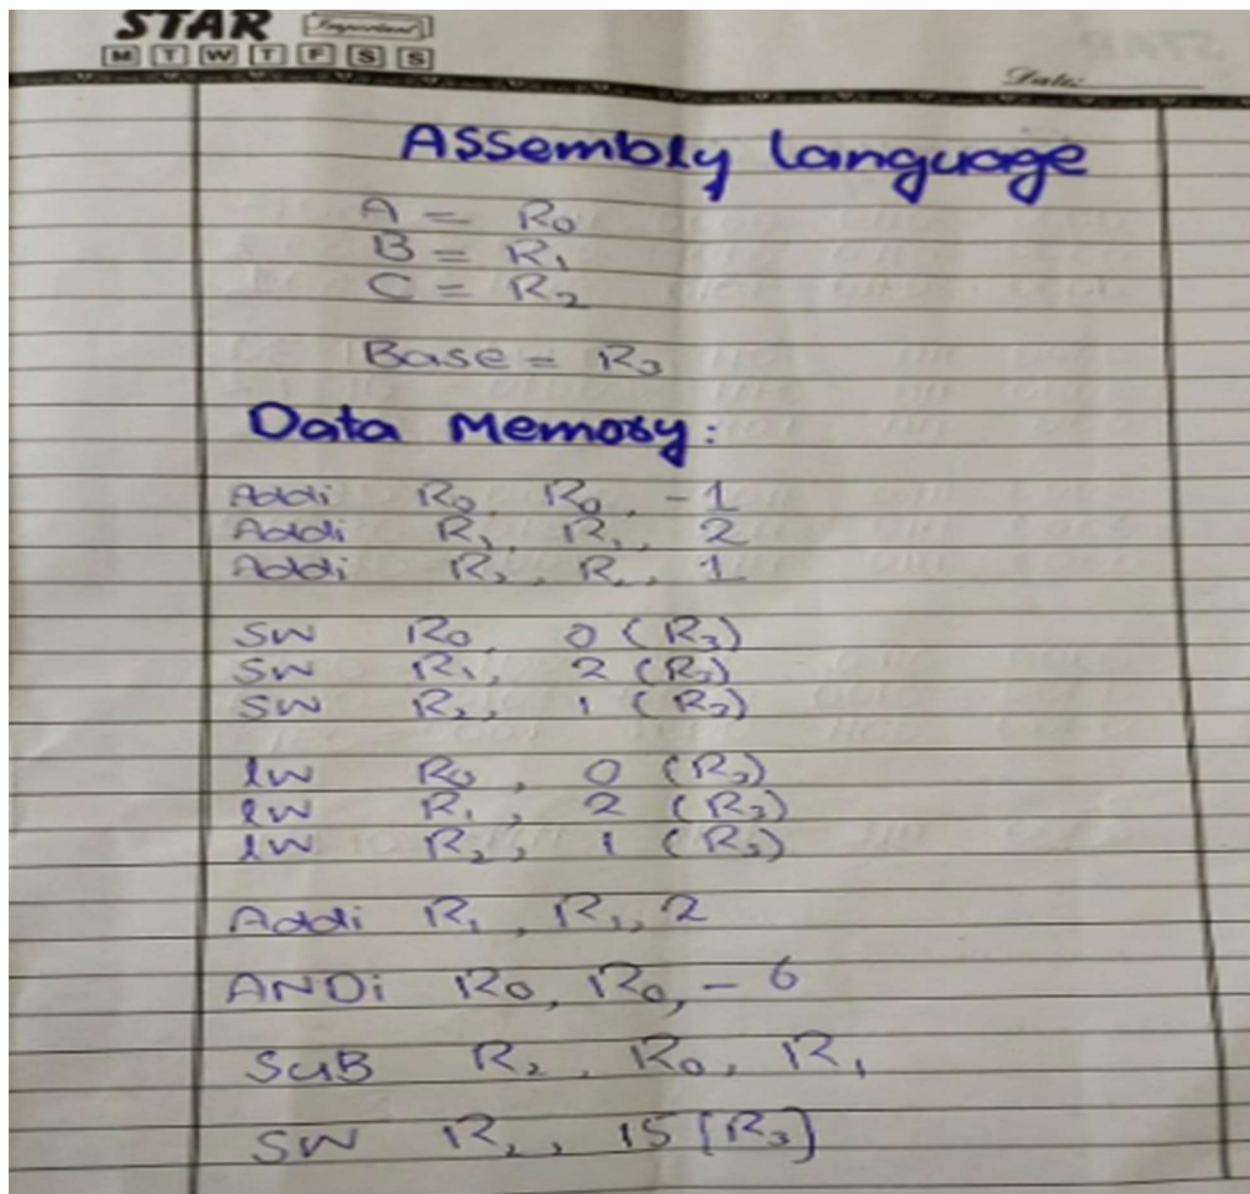 STAR Important
M T W T F S S
Date:
Assembly language
A = R0
B = R1
C = R2
Base = R3
Data Memory:
Addi R0, R0, -1
Addi R1, R1, 2
Addi R2, R2, 1
SW R0, 0 (R3)
SW R1, 2 (R3)
SW R2, 1 (R3)
lw R0, 0 (R3)
lw R1, 2 (R3)
lw R2, 1 (R3)
Addi R1, R1, 2
ANDi R0, R0, -6
SuB R2, R0, R1
SW R2, 15 (R3)